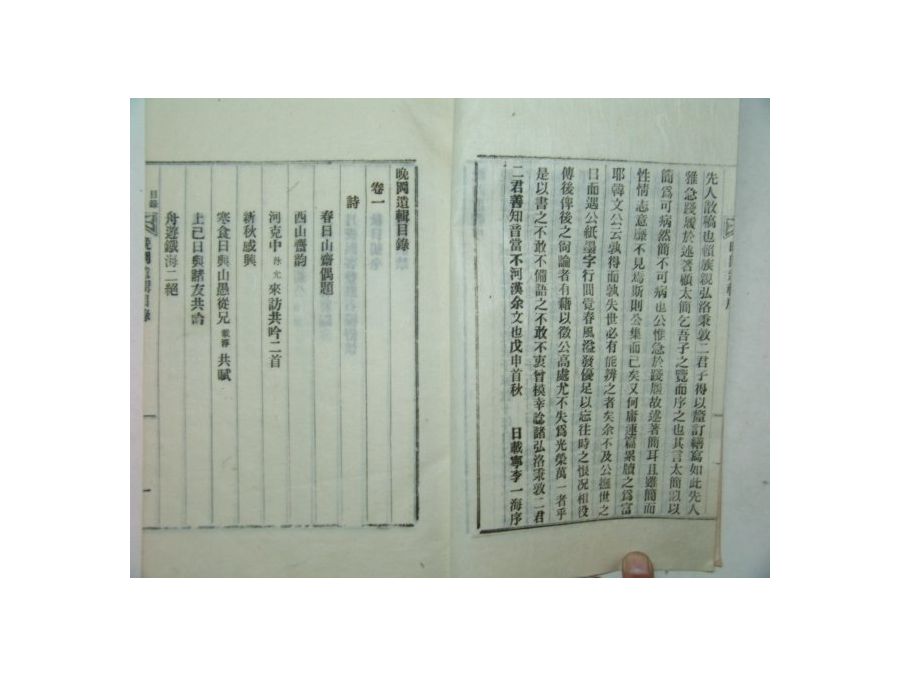 先人散稿也賴族親弘洛秉敦二君子得以釐訂繕寫如此先人
雅急踐履於述著頗太簡乞吾子之覽而序之也其言太簡以以
簡爲可病然簡不可病也公惟急於踐履故述著簡耳且雖簡而
性情志意靡不見焉斯則公集而已矣又何庸連篇累牘之爲富
耶韓文公云孰得而孰失世必有能辨之者矣余不及公撫世之
日而遇公紙墨字行間覺春風溢發優足以忘往時之恨况相役
傳後俾後之尙論者有藉以徵公高處尤不失爲光榮萬一者乎
是以書之不敢不備語之不敢不衷曾模幸諗諸弘洛秉敦二君
二君善知音當不河漢余文也戊申首秋 日載寧李一海序
晩 遺輯目錄
卷一
詩
春日山齋偶題
西山齋韵
河克中 來訪共吟二首
新秋感興
寒食日與山愚從兄載 共賦
上巳日與諸友共 
舟遊鐵海二絕
目錄